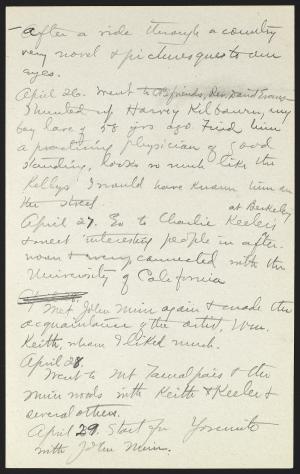 After a ride through a country
very novel & picturesque to our
eyes.
April 26. Went to friends, Rev. David Evans
I hunted up Harvey Kilbourn, my
boy love of 58 yrs ago. Find him
a practicing physician of good
standing, looks so much like the
Kellys I would have known him on
the street.
at Berkeley
April 27. Go to Charlie Keeler's
& meet interesting people in after-
noon & evening connected with the
University of California
I met John Muir again & made the
acquaintance of the artist, Wm.
Keith, whom I liked much.
April 28.
Went to Mt Tamalpais & the
Muir woods with Keith & Keeler &
several others.
April 29. Start for Yosemite
with John Muir.